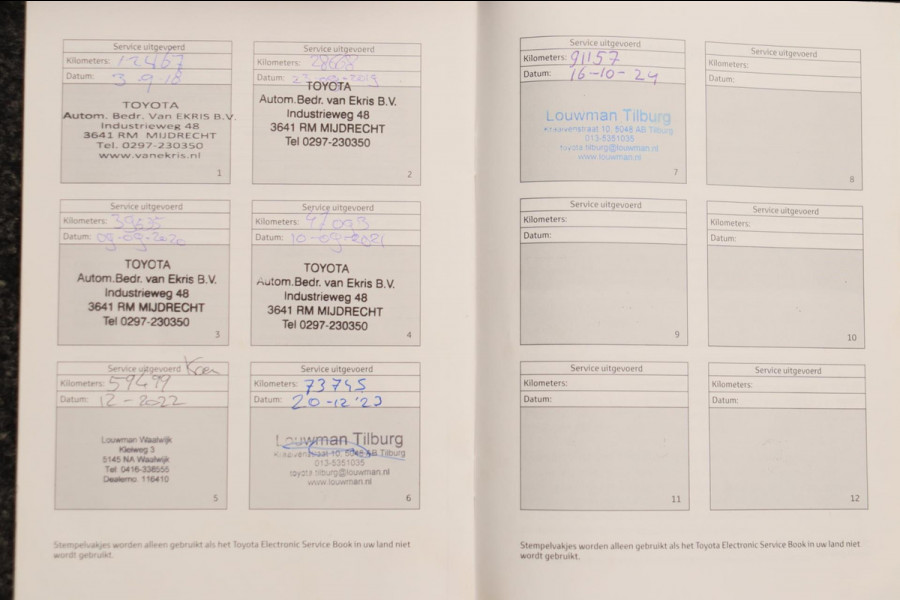 Service uitgevoerd
Kilometers: 12467
Datum: 3-9-18
TOYOTA
Autom. Bedr. Van EKRIS B.V.
Industrieweg 48
3641 RM MIJDRECHT
Tel. 0297-230350
www.vanekris.nl
1
Service uitgevoerd
Kilometers:
Datum:
TOYOTA
Autom.Bedr. van Ekris B.V.
Industrieweg 48
3641 RM MIJDRECHT
Tel 0297-230350
2
Service uitgevoerd
Kilometers:
Datum: 09-09-2020
TOYOTA
Autom.Bedr. van Ekris B.V.
Industrieweg 48
3641 RM MIJDRECHT
Tel 0297-230350
3
Service uitgevoerd
Kilometers: 47093
Datum: 10-09-2021
TOYOTA
Autom.Bedr. van Ekris B.V.
Industrieweg 48
3641 RM MIJDRECHT
Tel 0297-230350
4
Service uitgevoerd
Kilometers: 59499
Datum: 12-2022
Louwman Waalwijk
Kleiweg 3
5145 NA Waalwijk
Tel 0416-336555
Dealerno. 116410
5
Service uitgevoerd
Kilometers: 73745
Datum: 20-12'23
Louwman Tilburg
Kraaivenstraat 10, 5048 AB Tilburg
013-5351035
toyota.tilburg@louwman.nl
www.louwman.nl
6
Stempelvakjes worden alleen gebruikt als het Toyota Electronic Service Book in uw land niet
wordt gebruikt.
Service uitgevoerd
Kilometers: 91157
Datum: 16-10-24
Louwman Tilburg
Kraaivenstraat 10, 5048 AB Tilburg
013-5351035
toyota.tilburg@louwman.nl
www.louwman.nl
7
Service uitgevoerd
Kilometers:
Datum:
8
Service uitgevoerd
Kilometers:
Datum:
9
Service uitgevoerd
Kilometers:
Datum:
10
Service uitgevoerd
Kilometers:
Datum:
11
Service uitgevoerd
Kilometers:
Datum:
12
Stempelvakjes worden alleen gebruikt als het Toyota Electronic Service Book in uw land niet
wordt gebruikt.